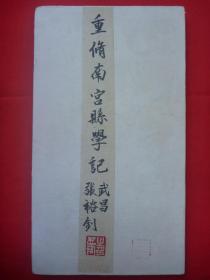 重脩南宫縣學記
武昌
張裕釗